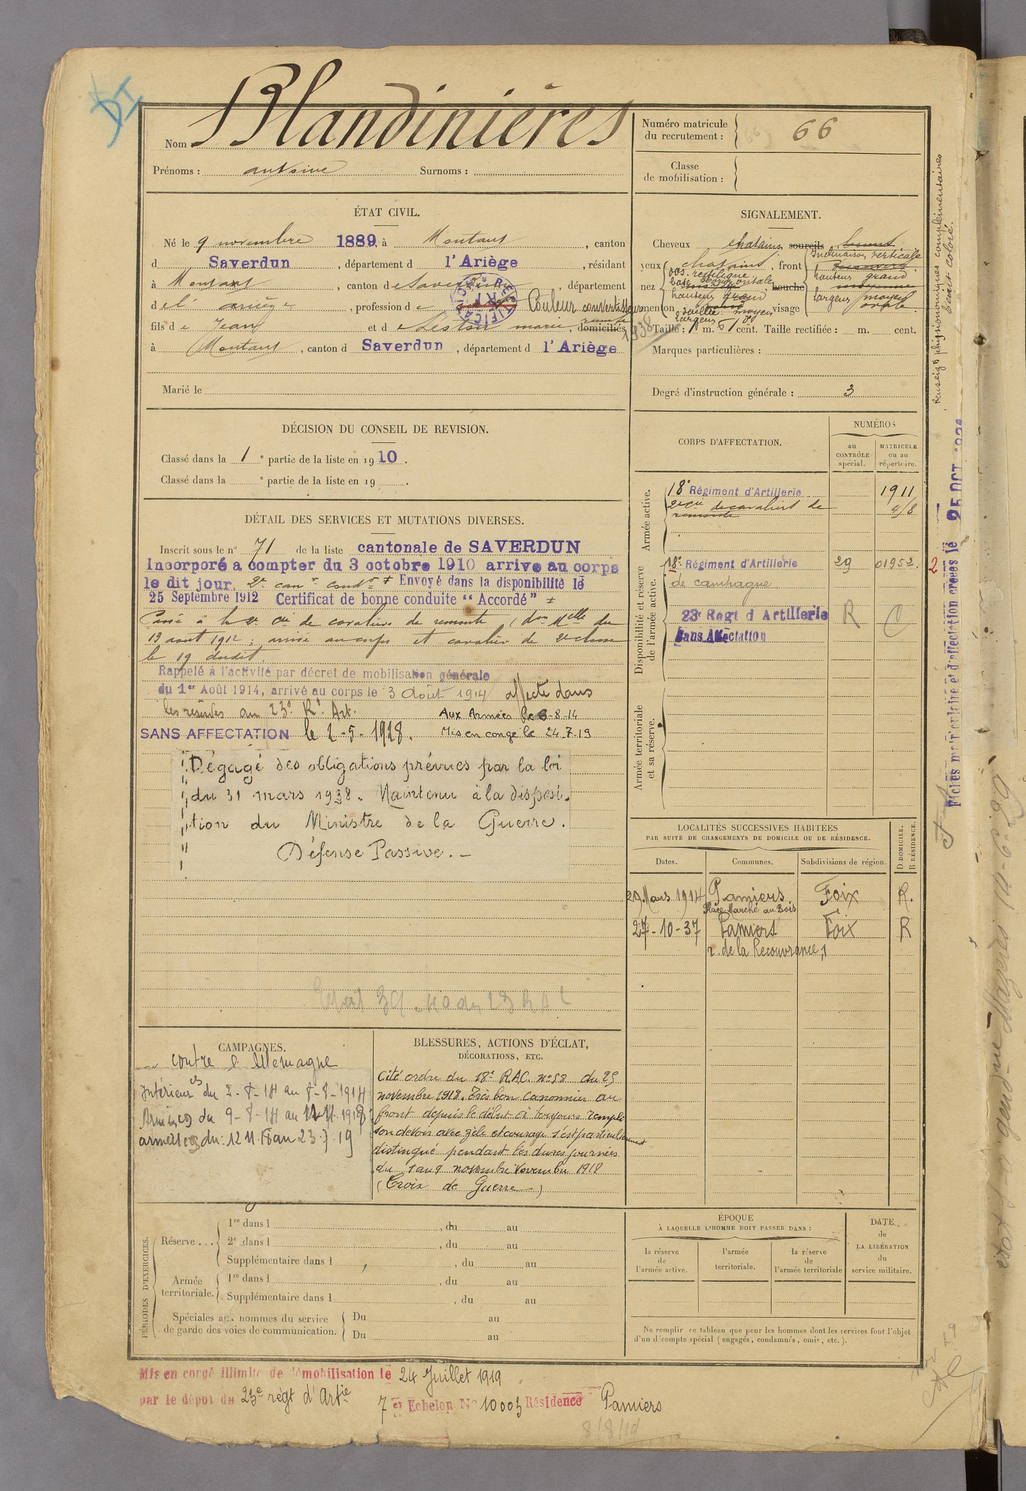 DI
Nom Blandinières
Prénoms : antoine Surnoms :
Numéro matricule du recrutement : 66
Classe de mobilisation :
ÉTAT CIVIL.
Né le 9 novembre 1889, à Montaut, canton
d Saverdun, département d l'Ariège, résidant
à Montaut, canton de Saverdun, département
d el' ariège, profession d e Couleur
fils d e Jean et d e marie, domiciliés
à Montaut, canton d Saverdun, département d l'Ariège
Marié le
SIGNALEMENT.
Cheveux chatains sourcils
yeux chatains, front Inclinaison verticale
hauteur grand
nez dos rectiligne
base horizontale
hauteur grand
bouche
largeur moyen
menton, visage
Taille : 1 m. cent. Taille rectifiée : m. cent.
Marques particulières :
Degré d'instruction générale : 3
Renseigts physionomiques complémentaires
DÉCISION DU CONSEIL DE REVISION.
Classé dans la 1e partie de la liste en 1910.
Classé dans la e partie de la liste en 19 .
DÉTAIL DES SERVICES ET MUTATIONS DIVERSES.
Inscrit sous le n° 71 de la liste cantonale de SAVERDUN
Incorporé a compter du 3 octobre 1910 arrive au corps
le dit jour. 2e can. cond. Envoyé dans la disponibilité le
25 Septembre 1912 Certificat de bonne conduite “ Accordé ”
Passé à la Cie de cavaliers de remonte (don Mlle du
13 août 1912 ; arrivé au corps et cavalier de 2e classe
le 19 dudit.
Rappelé à l'activité par décret de mobilisation générale
du 1er Août 1914, arrivé au corps le 3 Août 1914 affecté dans
les réserves au 23e Rt Art. Aux Armées le 6-8-14
SANS AFFECTATION le 2-5-1928. Mis en congé le 24.7.19
Dégagé des obligations prévues par la loi
du 31 mars 1938. Maintenu à la disposi-
tion du Ministre de la Guerre.
Défense Passive.
CORPS D'AFFECTATION.
NUMÉROS
au CONTRÔLE spécial.
MATRICULE ou au répertoire.
Armée active.
18e Régiment d'Artillerie 1911
cavaliers de
remonte
Disponibilité et réserve de l'armée active.
18e Régiment d'Artillerie 29 01952
de campagne
23e Regt d Artillerie R C
Sans Affectation
Armée territoriale et sa réserve.
LOCALITÉS SUCCESSIVES HABITÉES
PAR SUITE DE CHANGEMENTS DE DOMICILE OU DE RÉSIDENCE.
Dates. Communes. Subdivisions de région. D DOMICILE. R RÉSIDENCE.
29 Mars 1914 Pamiers Foix R.
Place Marché au Bois
27-10-37 Pamiers Foix R
r. de la Recouvrance, 1
CAMPAGNES.
contre l'Allemagne
Intérieur du 2-8-14 au 8-8-1914
Armées du 9-8-14 au 11-11-1918
armées du 12 11 18 au 23-7-19
BLESSURES, ACTIONS D'ÉCLAT,
DÉCORATIONS, ETC.
Cité ordre du 18e RAC. n°58 du 25
novembre 1918. Très bon canonnier au
front depuis le début a toujours rempli
son devoir avec zèle et courage s'est particulièrement
distingué pendant les dures journées
du 1 au 9 novembre Novembre 1918
(Croix de Guerre)
PÉRIODES D'EXERCICES.
Réserve... 1re dans l , du au
2e dans l , du au
Supplémentaire dans l , du au
Armée territoriale. 1re dans l , du au
Supplémentaire dans l , du au
Spéciales aux hommes du service
de garde des voies de communication. Du au
Du au
ÉPOQUE
À LAQUELLE L'HOMME DOIT PASSER DANS :
la réserve de l'armée active.
l'armée territoriale.
la réserve de l'armée territoriale
DATE de LA LIBÉRATION du service militaire.
Ne remplir ce tableau que pour les hommes dont les services font l'objet
d'un décompte spécial (engagés, condamnés, omis, etc.).
Mis en congé illimité de démobilisation le 24 Juillet 1919
par le dépôt du 23e régt d'Artie 7e Echelon N° 10003 Résidence Pamiers